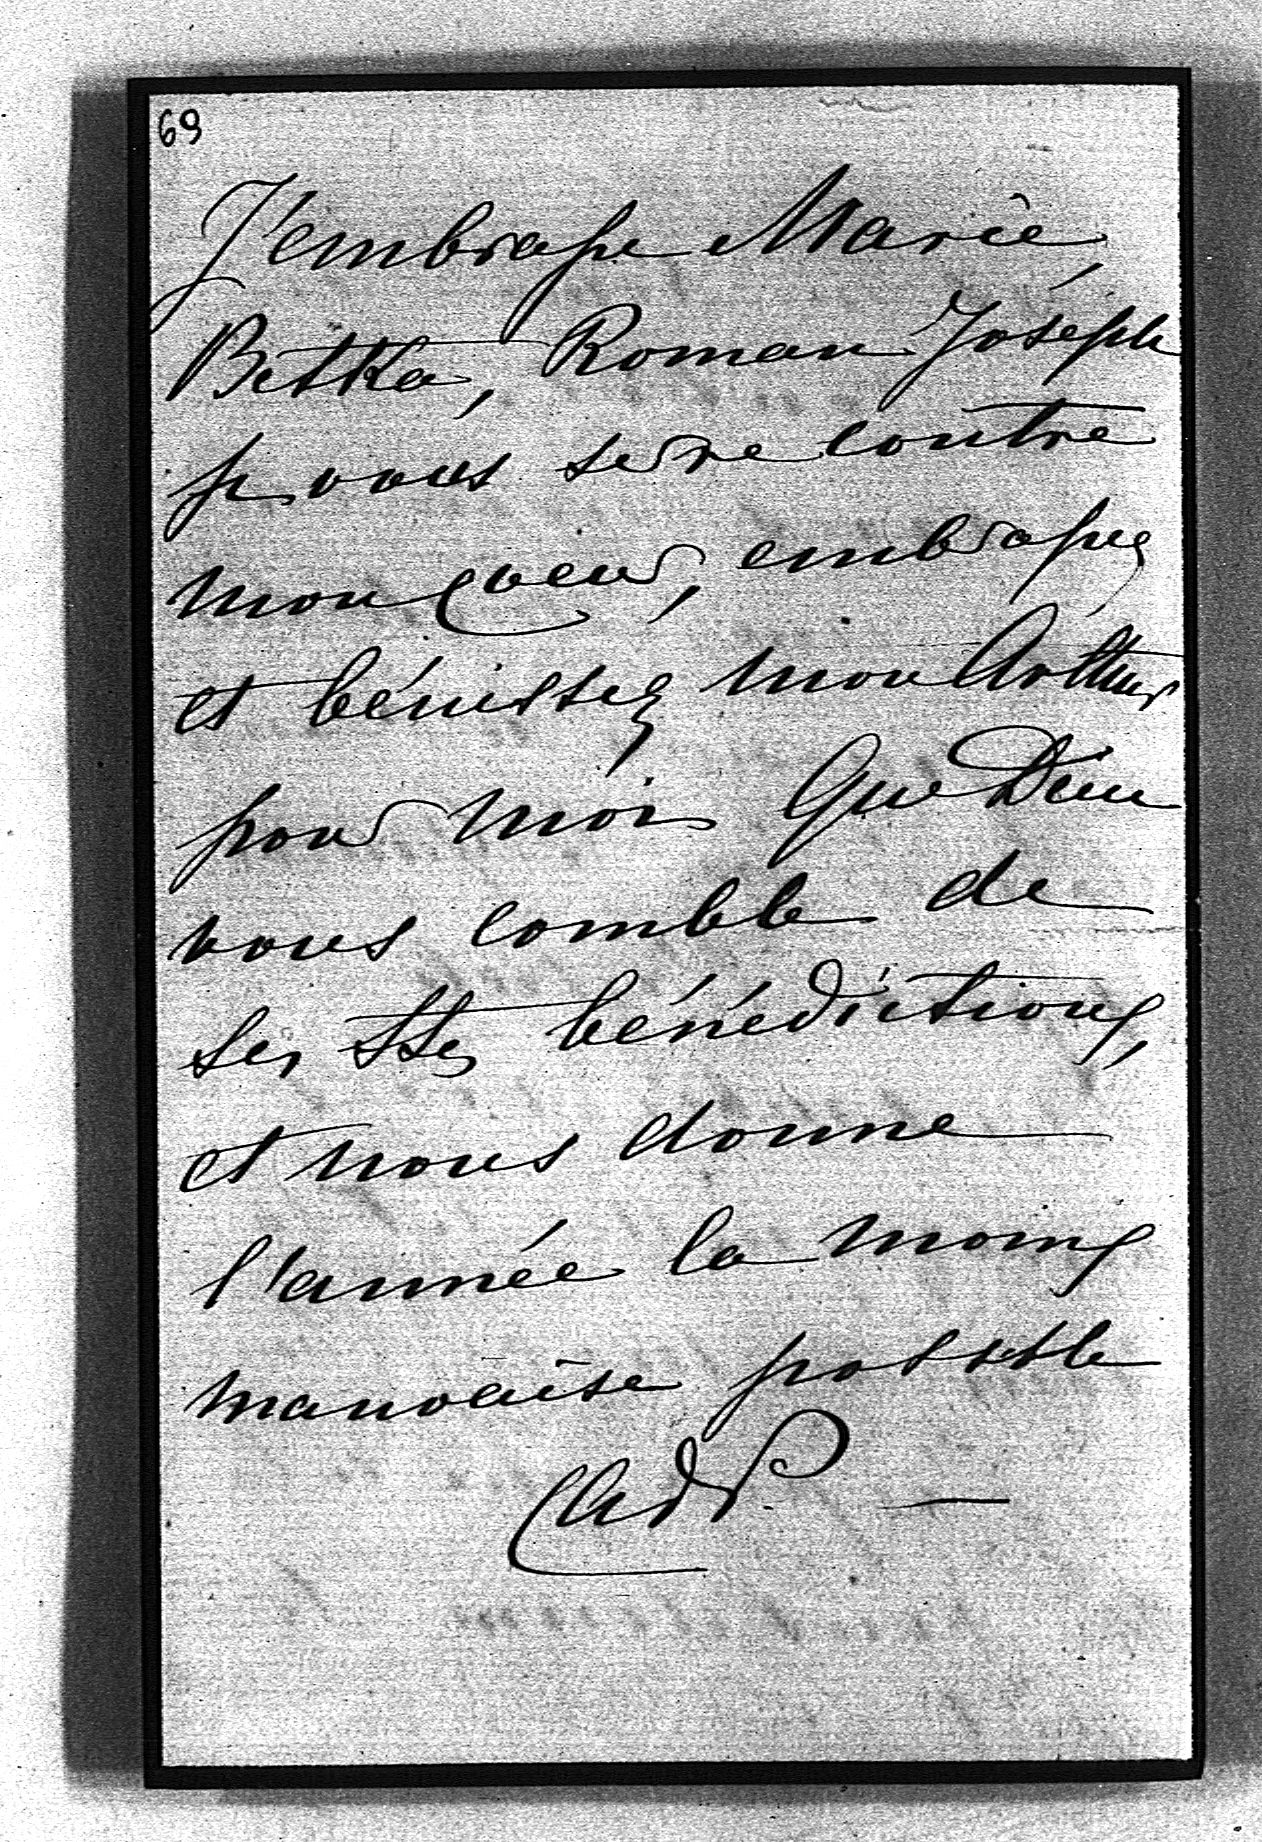 69
J'embrasse Marie,
Betka, Roman Joseph
je vous serre contre
mon coeur, embrassez
et bénissez mon Arthur
pour moi Que Dieu
vous comble de
Ses Stes bénédictions,
et nous donne
l'année la moins
mauvaise possible